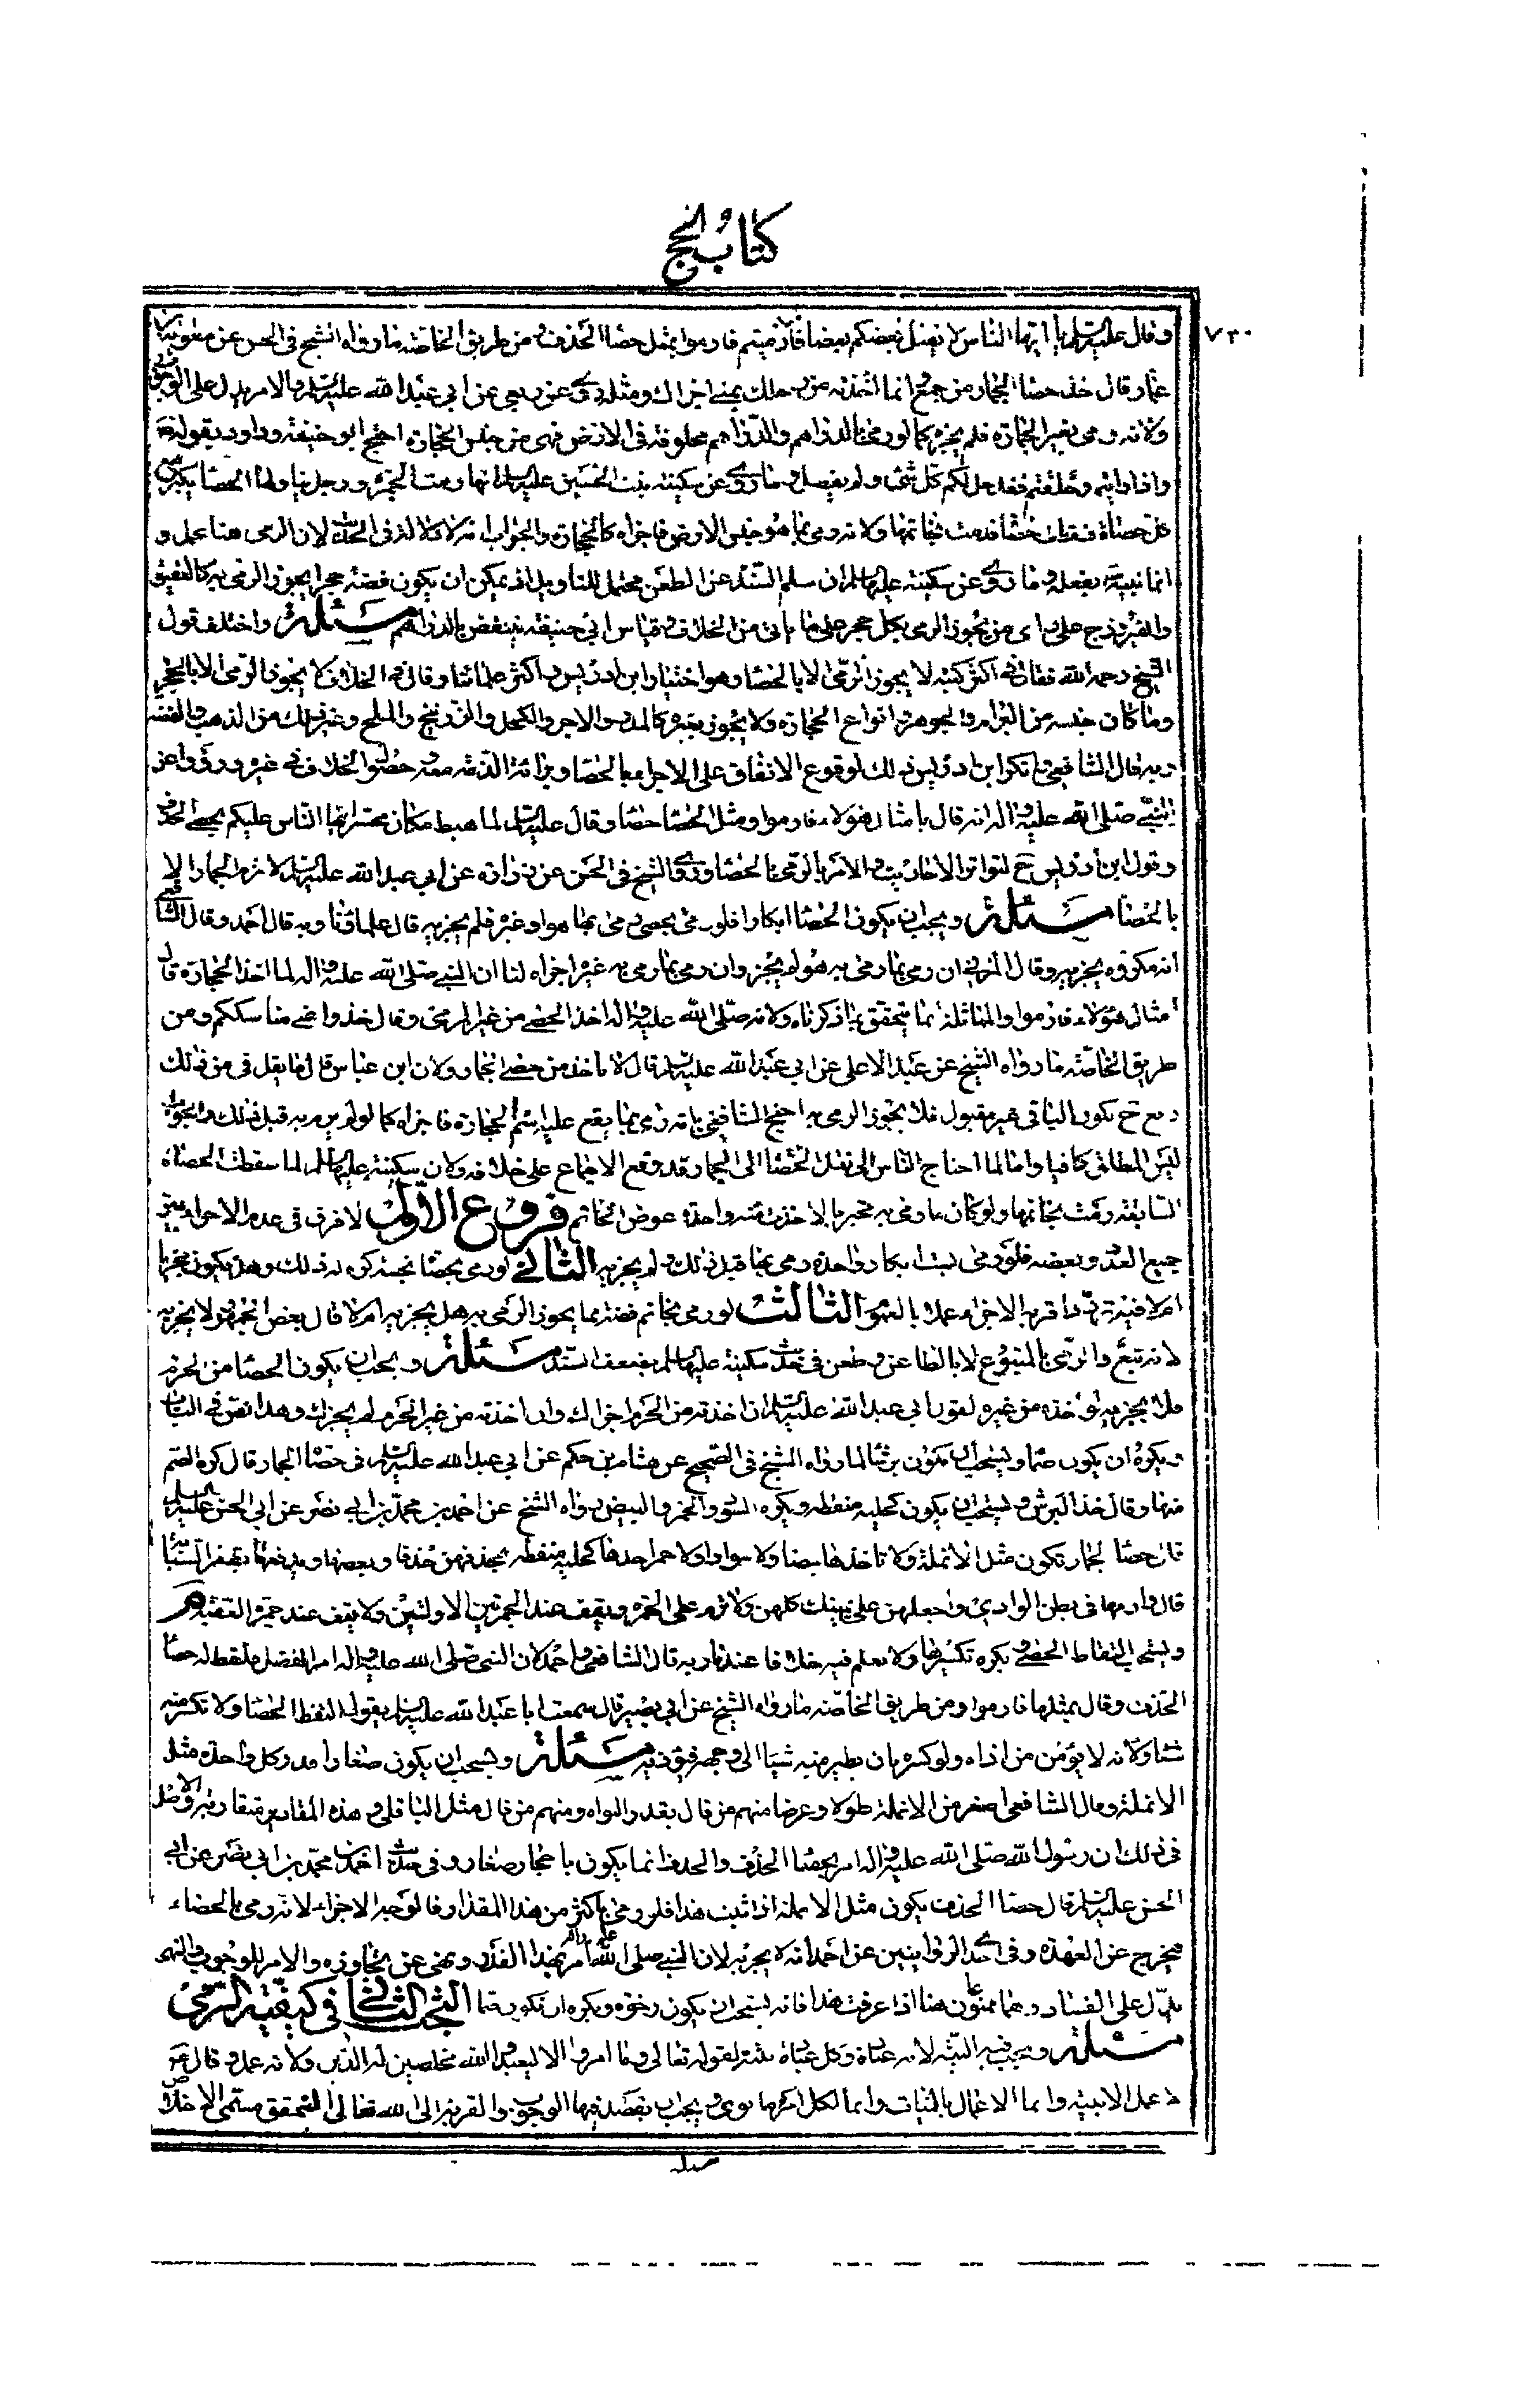 كتاب الحج
٧٣٠
وقال عليه السلام يا ايها الناس لا يقتل بعضكم بعضا فاذا رميتم فارموا بمثل حصا الخذف ومن طريق الخاصة ما رواه الشيخ في الحسن عن معوية بن
عمار قال خذ حصا الجمار من جمع انما اخذته من رحلك بمنى اجزاك ومثله روى عن ربعي عن ابي عبد الله عليه السلام والامر يدل على الوجوب
ولانه رمى بغير الحجارة فلم يجزه كما لو رمى بالدراهم والدراهم مخلوقة في الارض فهي من جنس الحجارة احتج ابو حنيفة وداود بقوله
واذا رميتم وحلقتم فقد حل لكم كل شئ ولم يفصل وما روى عن سكينة بنت الحسين عليه السلام انها رمت الجمرة ورجل يناولها الحصا يكبر مع
كل حصاة فسقطت حصاة فرمت بخاتمها ولانه رمى بما هو جنس الارض فاجزاه كالحجارة والجواب انه لا دلالة في الحديث لان الرمى هنا مجمل و
انما بينه بفعله وما روى عن سكينة عليها السلام ان سلم السند عن الطعن محتمل للتاويل اذ يمكن ان يكون فصه حجرا يجوز الرمى به كالعقيق
والفيروزج على راى من يجوز الرمى بكل حجر على ما ياتى من الخلاف وقياس ابي حنيفة ينتقض بالدراهم مسئلة واختلف قول
الشيخ رحمه الله فقال في اكثر كتبه لا يجوز الرمى الا بالحصا وهو اختيار ابن ادريس واكثر علمائنا وقال في الخلاف لا يجوز الرمى الا بالحجر
وما كان جنسه من البرام والجوهر وانواع الحجارة ولا يجوز بغيره كالمدر والاجر والكحل والزرنيخ والملح وغير ذلك من الذهب والفضة
وبه قال الشافعي وانكر ابن ادريس ذلك لوقوع الاتفاق على الاجزاء بالحصا وبرائة الذمة معه وحصول الخلاف في غيره ورووا عن
النبي صلى الله عليه واله انه قال بامثال هؤلاء فارموا ومثل الحصا حصا وقال عليه السلام لما هبط مكان محسر ايها الناس عليكم بحصى الخذف
وقول ابن ادريس ح لتواتر الاحاديث والامر بالرمى بالحصا وروى الشيخ في الحسن عن زرارة عن ابي عبد الله عليه السلام لا ترم الجمار الا
بالحصا مسئلة ويجب ان يكون الحصا ابكارا فلو رمى بحصى رمى بها هو او غيره لم يجزيه قال علمائنا وبه قال احمد وقال الشافعي
انه مكروه يجزيه وقال المزني ان رمى بما رمى به هو لم يجز وان رمى بما رمى به غيره اجزاه لنا ان النبي صلى الله عليه واله لما اخذ الحجارة قال
امثال هؤلاء فارموا والمماثلة انما تتحقق بما ذكرناه ولانه صلى الله عليه واله اخذ الحصى من غير المرمى وقال خذوا عني مناسككم ومن
طريق الخاصة ما رواه الشيخ عن عبد الاعلى عن ابي عبد الله عليه السلام قال لا ياخذ من حصى الجمار ولان ابن عباس قال ما يقبل في من ذلك
رفع ح يكون الباقي غير مقبول فلا يجوز الرمى به احتج الشافعي بانه رمى بما يقع عليه اسم الحجارة فاجزاه كما لو لم يرم به قبل ذلك والجواب
ليس المطلق كافيا والا لما احتاج الناس الى نقل الحصا الى الجمار وقد وقع الاجماع على خلافه ولان سكينة عليها السلام لما سقطت الحصاة
السابعة رمت بخاتمها ولو كان ما رمى به مجزيا لاخذت منه واحدة عوض الخاتم فروع الاول لا فرق في عدم الاجزاء بين
جميع العدد وبعضه فلو رمى بست ابكار وواحدة رمى بها قبل ذلك لم يجزيه الثاني لو رمى بحصا نجسة كره له ذلك وهل يكون مجزيا
ام لا فيه تردد اقربه الاجزاء عملا بالعموم الثالث لو رمى بخاتم فضة مما يجوز الرمى به هل يجزيه ام لا قال بعض الجمهور لا يجزيه
لانه تبع والرمى بالمتبوع لا بالطاعن وطعن في حديث سكينة عليها السلام بضعف السند مسئلة ويجب ان يكون الحصا من الحرم
فلا يجزيه لو اخذه من غيره لقول ابي عبد الله عليه السلام ان اخذته من الحرم اجزاك وان اخذته من غير الحرم لم يجزك وهذا نص في الباب
ويكره ان يكون صما ويستحب ان يكون برشا لما رواه الشيخ في الصحيح عن هشام بن حكم عن ابي عبد الله عليه السلام في حصا الجمار قال كره الصم
منها وقال خذ البرش ويستحب ان يكون كحلية منقطة ويكره السود والحمر والبيض رواه الشيخ عن احمد بن محمد بن ابي نصر عن ابي الحسن عليه السلام
قال حصا الجمار تكون مثل الانملة ولا تاخذها بيضا ولا سوادا ولا حمرا خذها كحلية منقطة يخذفهن خذفا ويضعها ويدفعها بظفر السبابة
قال وارمها في بطن الوادي واجعلهن على يمينك كلهن ولا ترم على الجمرة ويقف عند الجمرتين الاولتين ولا يقف عند جمرة العقبة
ويستحب التقاط الحصى ويكره تكسيرها ولا نعلم فيه خلافا عندنا وبه قال الشافعي واحمد لان النبي صلى الله عليه واله امر الفضل فلقط له حصا
الخذف وقال بمثلها فارموا ومن طريق الخاصة ما رواه الشيخ عن ابي بصير قال سمعت ابا عبد الله عليه السلام يقول التقط الحصا ولا تكسر منه
شيئا ولانه لا يؤمن من اذاه ولو كسره بان يطير منه شيئا الى وجهه فيؤذيه مسئلة ويستحب ان يكون صغارا قدر كل واحدة مثل
الانملة وقال الشافعي اصغر من الانملة طولا وعرضا منهم من قال بقدر النواة ومنهم من قال مثل الباقلى وهذه المقادير متقاربة والاصل
في ذلك ان رسول الله صلى الله عليه واله امر بحصا الخذف والخذف انما يكون باحجار صغار وفي حديث احمد بن محمد بن ابي نصر عن ابي
الحسن عليه السلام قال حصا الخذف يكون مثل الانملة اذا ثبت هذا فلو رمى باكثر من هذا المقدار فالوجه الاجزاء لانه رمى بالحصاء
فيخرج عن العهدة وفي احد الروايتين عن احمد انه لا يجزيه لان النبي صلى الله عليه واله امر بهذا القدر ونهى عن تجاوزه والامر للوجوب والنهى
يدل على الفساد وهما ممنوعان هنا اذا عرفت هذا فانه يستحب ان يكون رخوة ويكره ان تكون صما البحث الثاني في كيفية الرمى
مسئلة ويجب فيه النية لانه عبادة وكل عبادة بنية لقوله تعالى وما امروا الا ليعبدوا الله مخلصين له الدين ولانه عمل وقال ع
لا عمل الا بنية وانما الاعمال بالنيات وانما لكل امرئ ما نوى ويجب ان يقصد فيها الوجوب والقربة الى الله تعالى لتحقق مسمى الاخلاص